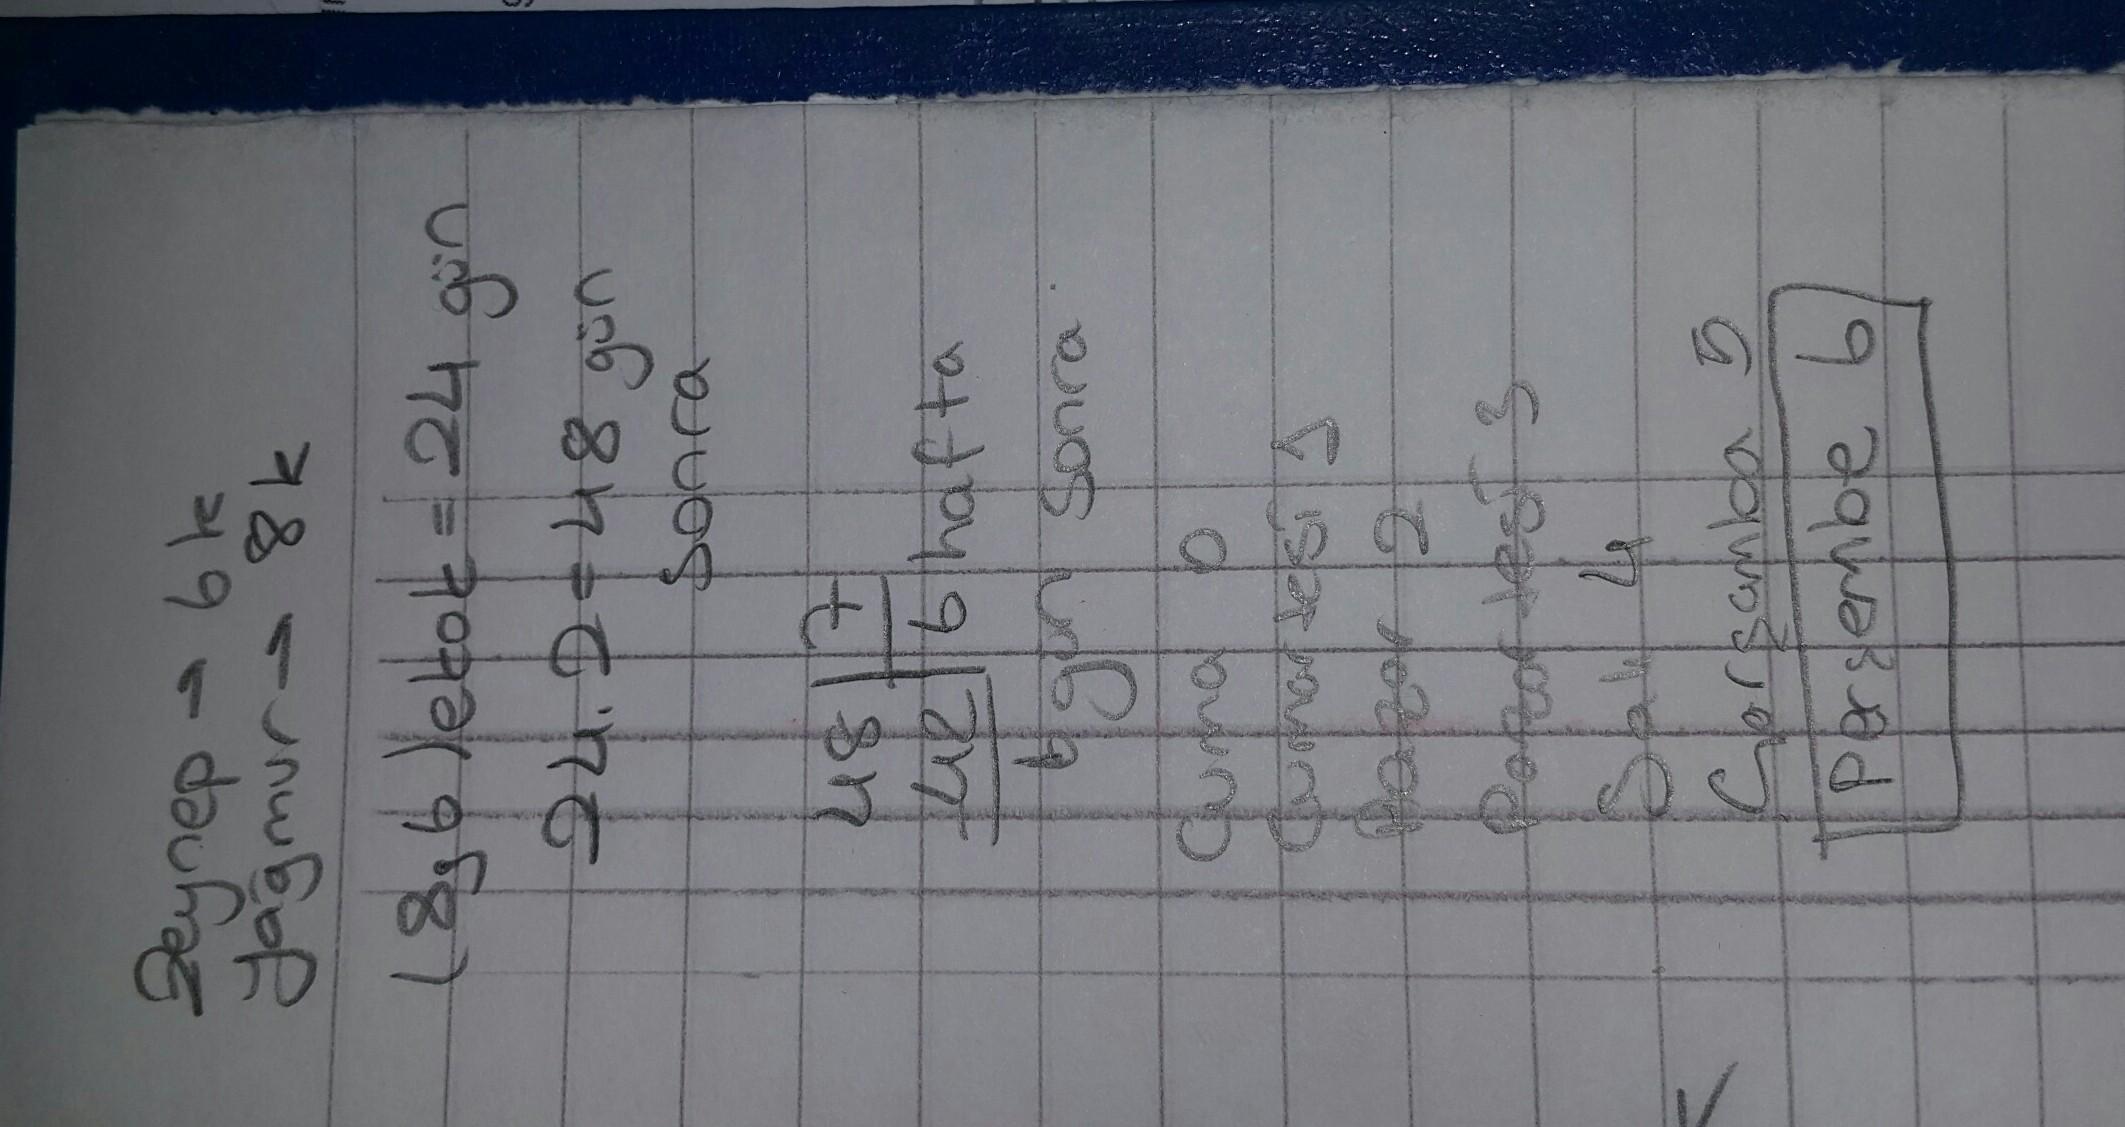 Zeynep → 6k
Yağmur → 8k
(8,6)ekok = 24 gün
24.2=48 gün
sonra
48 | 7
-42 | 6 hafta
6 gün sonra
Cuma 0
Cumartesi 1
Pazar 2
Pazartesi 3
Salı 4
Çarşamba 5
Perşembe 6